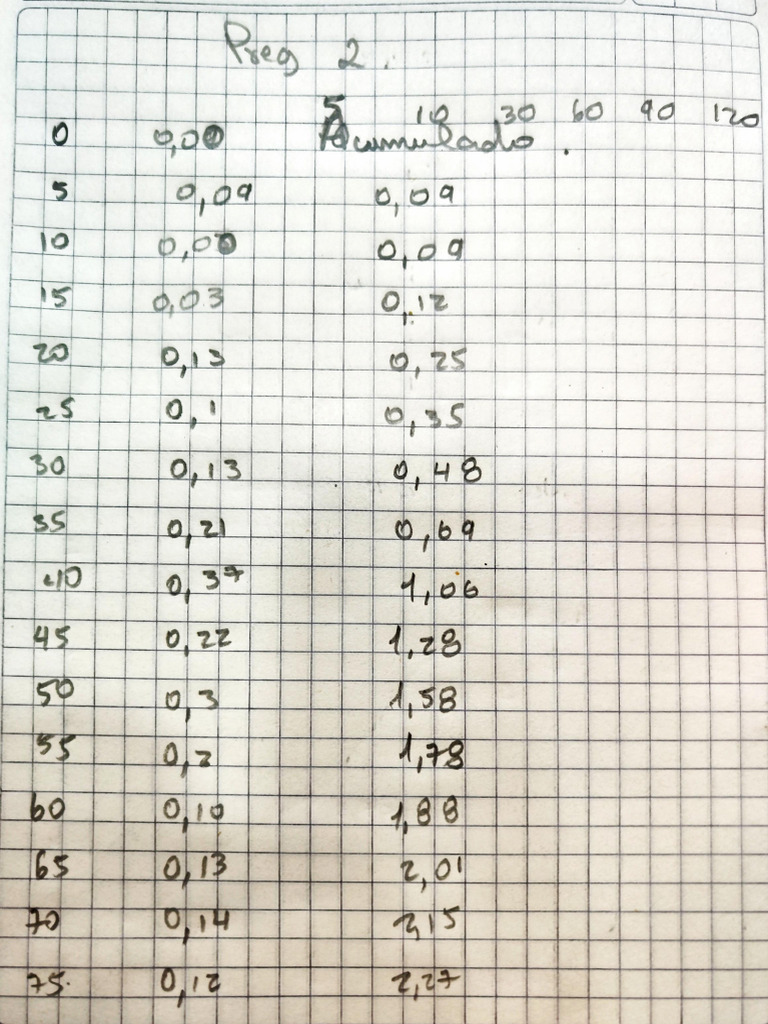 Preg 2.
5 10 30 60 90 120
0 0,00 Acumulado.
5 0,09 0,09
10 0,00 0,09
15 0,03 0,12
20 0,13 0,25
25 0,1 0,35
30 0,13 0,48
35 0,21 0,69
40 0,37 1,06
45 0,22 1,28
50 0,3 1,58
55 0,2 1,78
60 0,10 1,88
65 0,13 2,01
70 0,14 2,15
75. 0,12 2,27